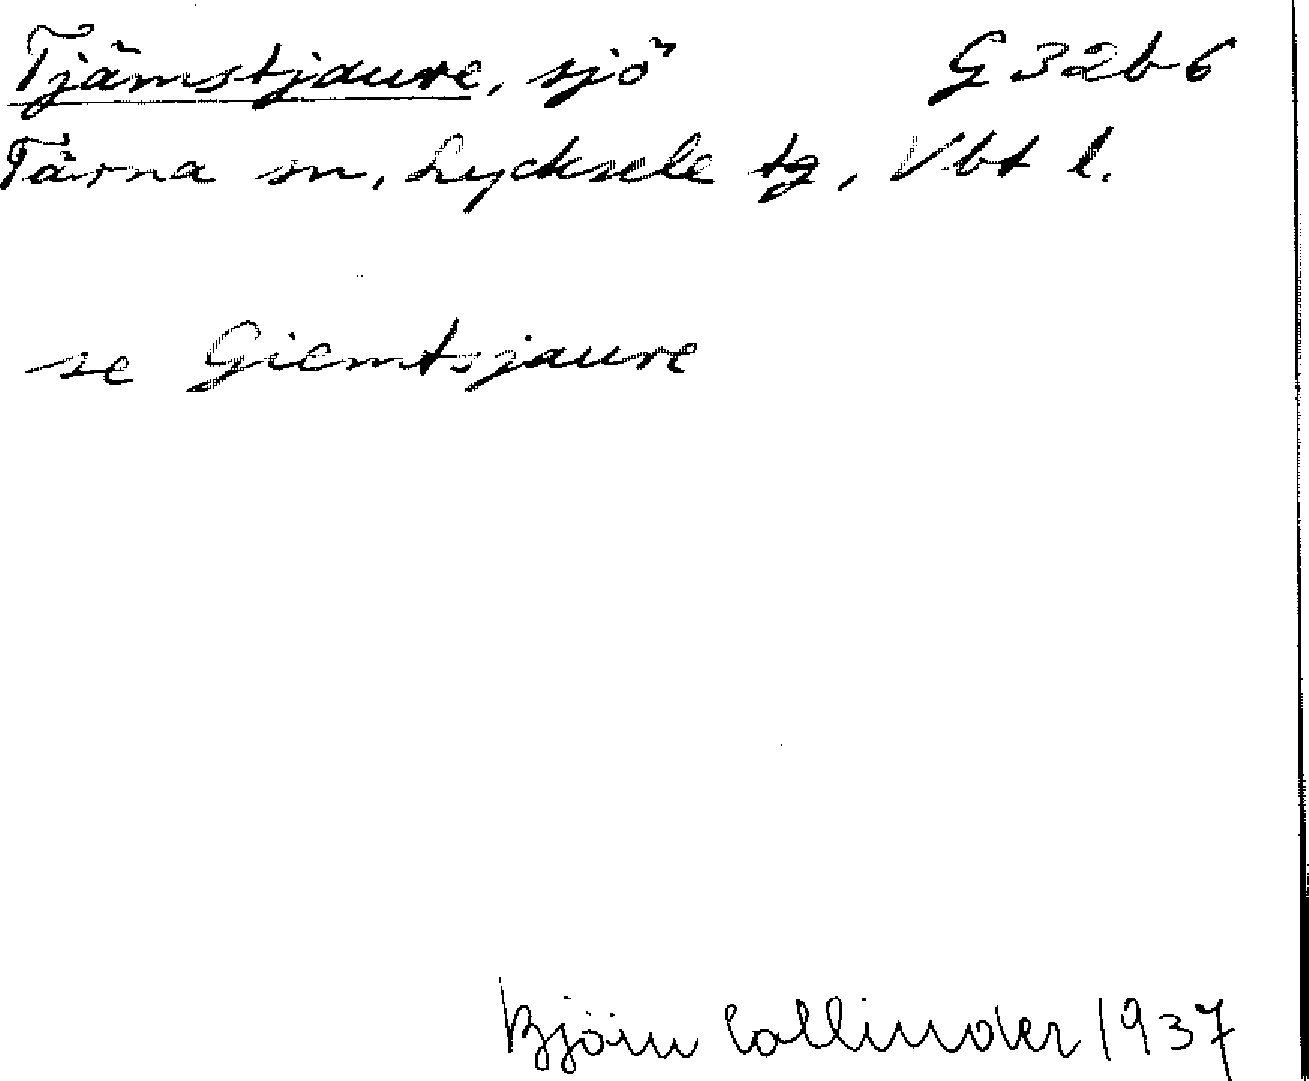 Tjämstjaure, sjö G 32 b 6
Tärna sn, Lycksele tg, Vbt l.
se Giemtsjaure
Björn Collinder 1937